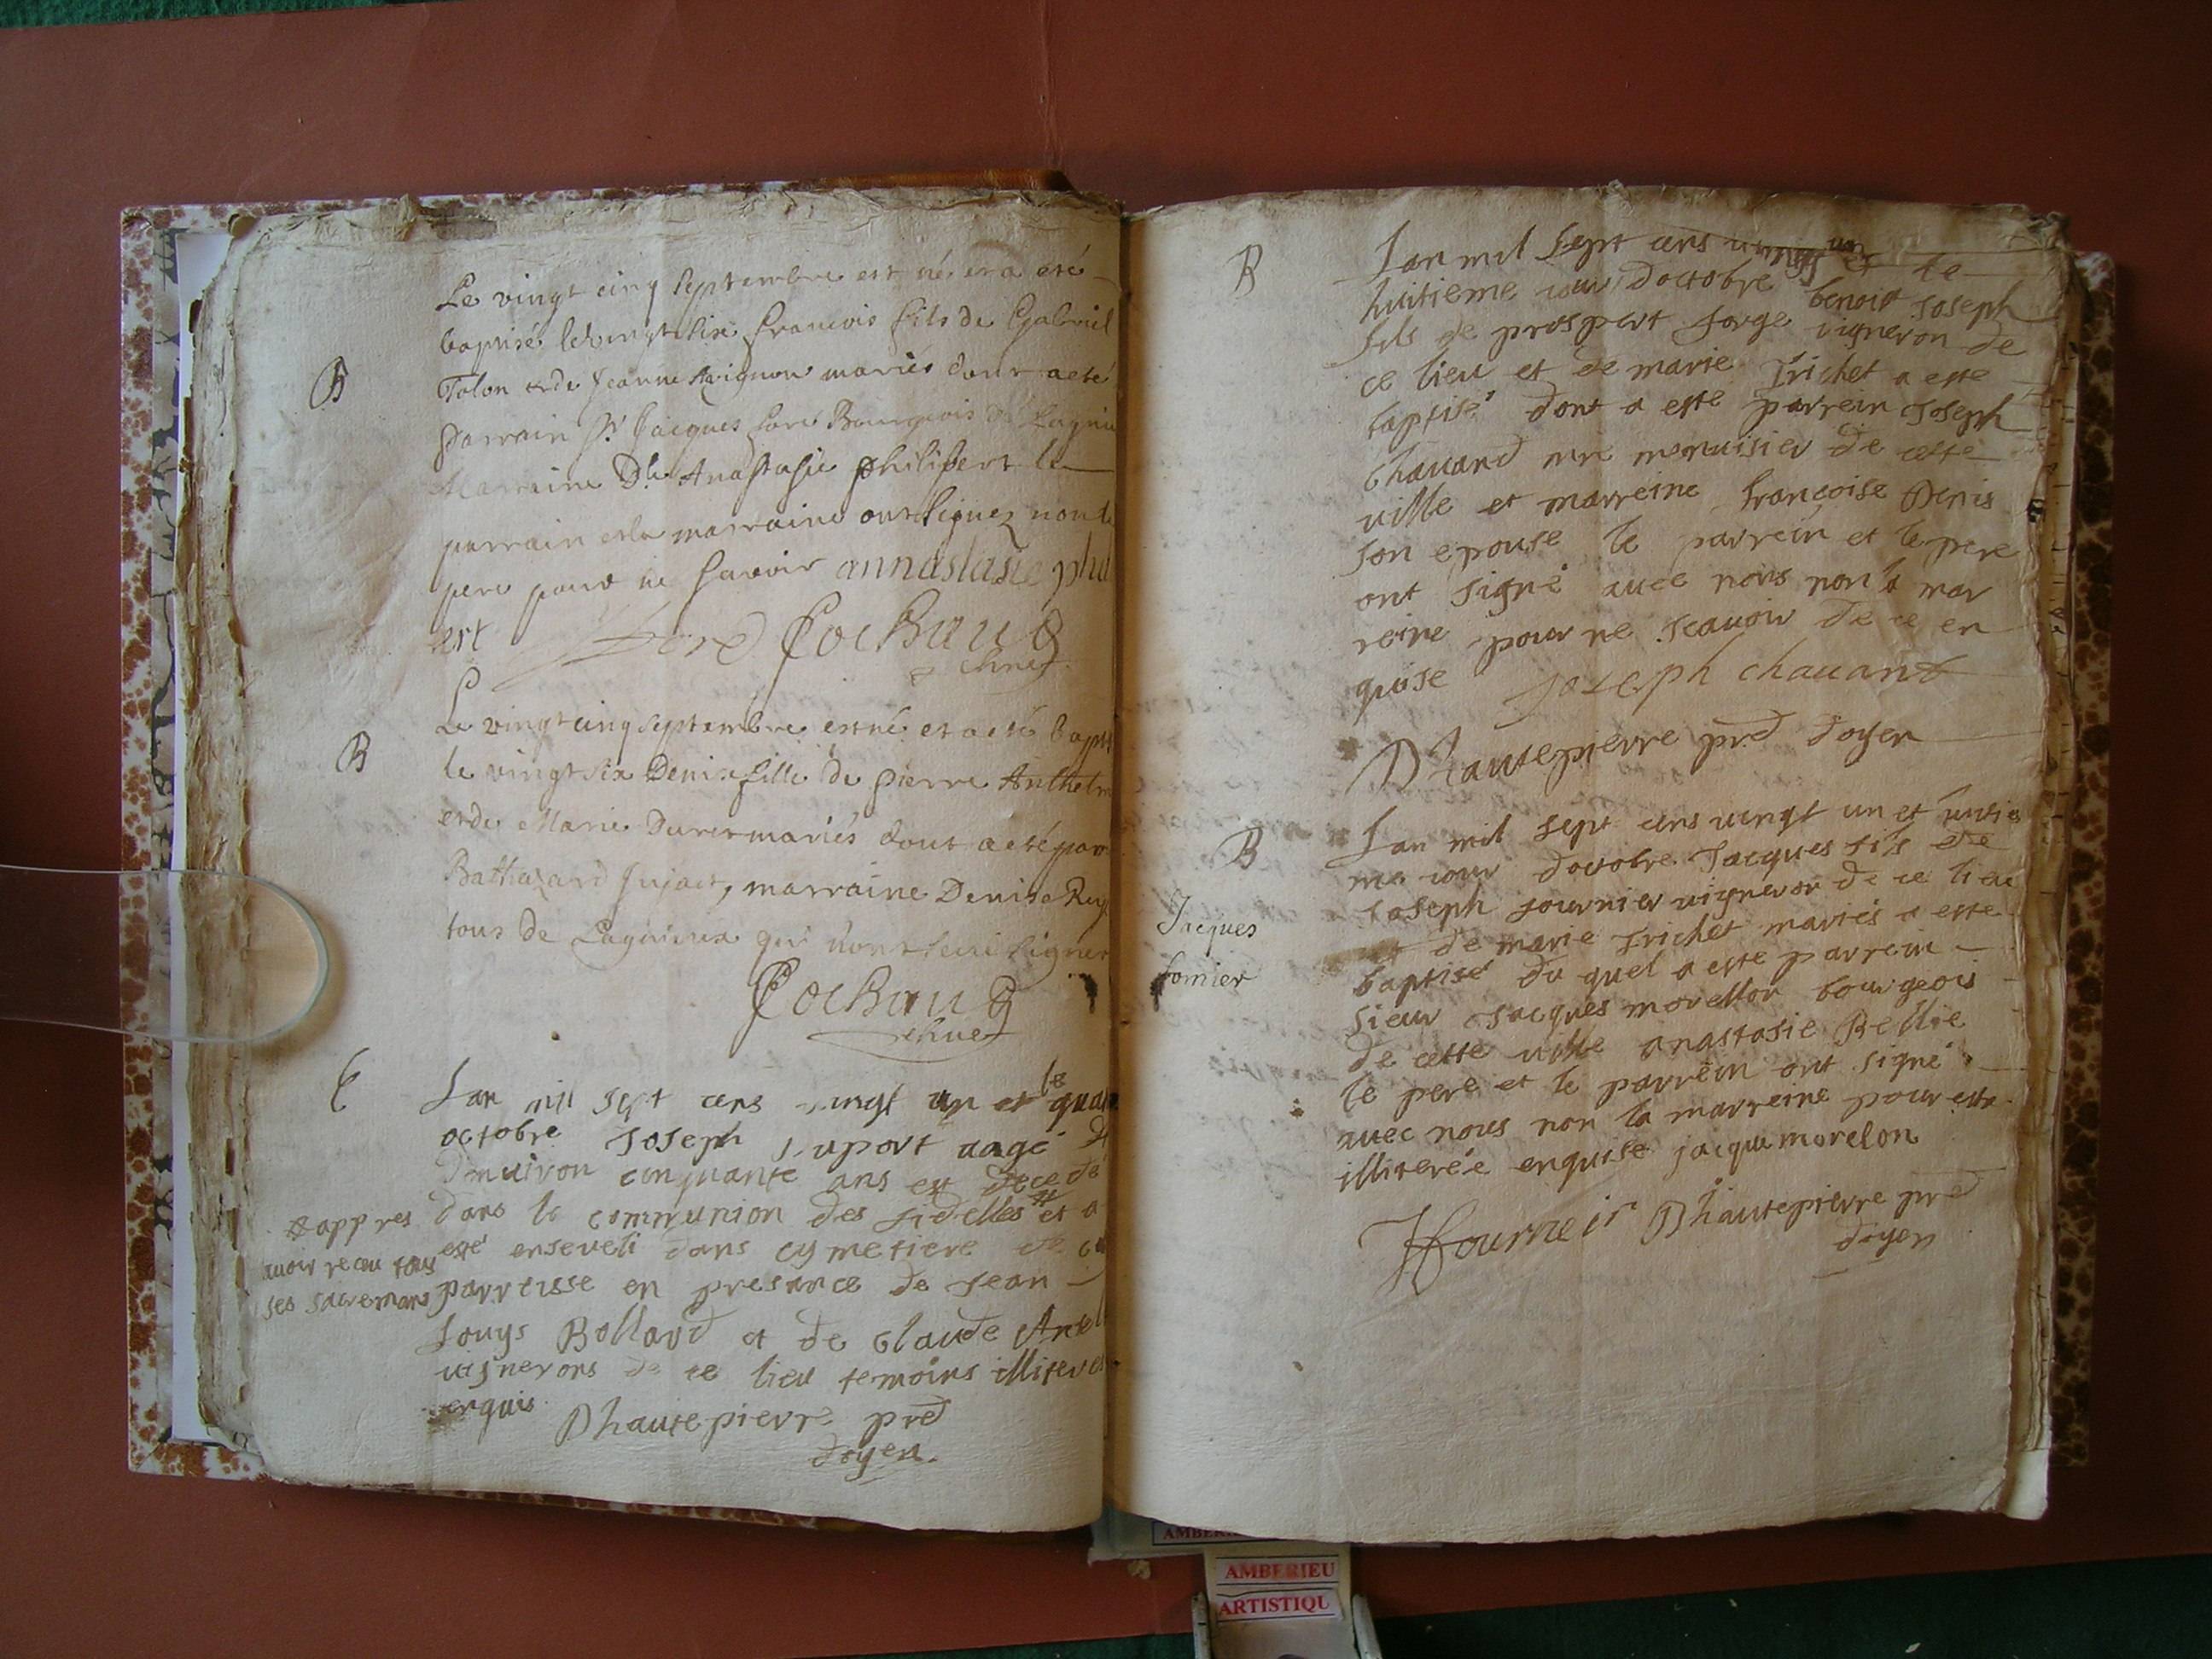 Le vingt cinq Septembre est né et a eté
B
baptisé le vingt six francois fils de Gabriel
Tolon et de Jeanne mariés dont a eté
parrain Sr Jacques Bourgeois de Lagnieu
Marraine Dlle Anastasie philibert le
parrain et la marraine ont signez non le
pere pour ne savoir annastasie phil
ert
Cochaud
Le vingt cinq septembre est né et a eté bapt
B
le vingt six Denise fille de pierre Anthelm
et de Marie Duret mariés dont a eté par
Bathazard Jujat, marraine Denise
tous de Lagnieux qui n'ont seu signer
Cochaud
E
Lan mil sept cens vingt un et le quat
octobre Joseph uport aagé
Denuiron cinquante ans est decedé
dans la communion des fidelles # et a
# appres
auoir receu tous
ses sacremans
esté enseveli dans cymetiere de ce
parroisse en presance de Jean
Louys Bollard et de Claude Antel
uignerons de ce lieu temoins illiteres
enquis
Dhautepierre pred
doyen.
B
Lan mil sept cens vingt un et le
huitieme iour d'octobre benoist Joseph
fils de prospert forge uigneron de
ce lieu et de marie Trichet a esté
baptisé dont a esté parrein Joseph
Chauand mre menuisier de cette
uille et marreine françoise Denis
son epouse le parrein et le pere
ont signé auec nous non la mar
reine pour ne scauoir de ce en
quise Joseph chauant
Dhautepierre pred doyen
B
Lan mil sept cens vingt un et unsie
me iour doctobre Jacques fils de
Joseph fournier uigneron de ce lieu
Jacques
fornier
et de marie Trichet mariés a esté
baptisé du quel a esté parrein
sieur Jacques morellon bourgeois
de cette uille anastasie Bellie
le pere et le parrein ont signé
auec nous non la marreine pour estre
illiterée enquise jacque morelon
Jfournier Dhautepierre pred
doyen
AMBERIEU
ARTISTIQU